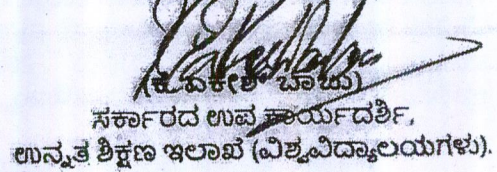 (ಕೆ.ಏಕೇಶ್ ಬಾಬು)
ಸರ್ಕಾರದ ಉಪ ಕಾರ್ಯದರ್ಶಿ,
ಉನ್ನತ ಶಿಕ್ಷಣ ಇಲಾಖೆ (ವಿಶ್ವವಿದ್ಯಾಲಯಗಳು).